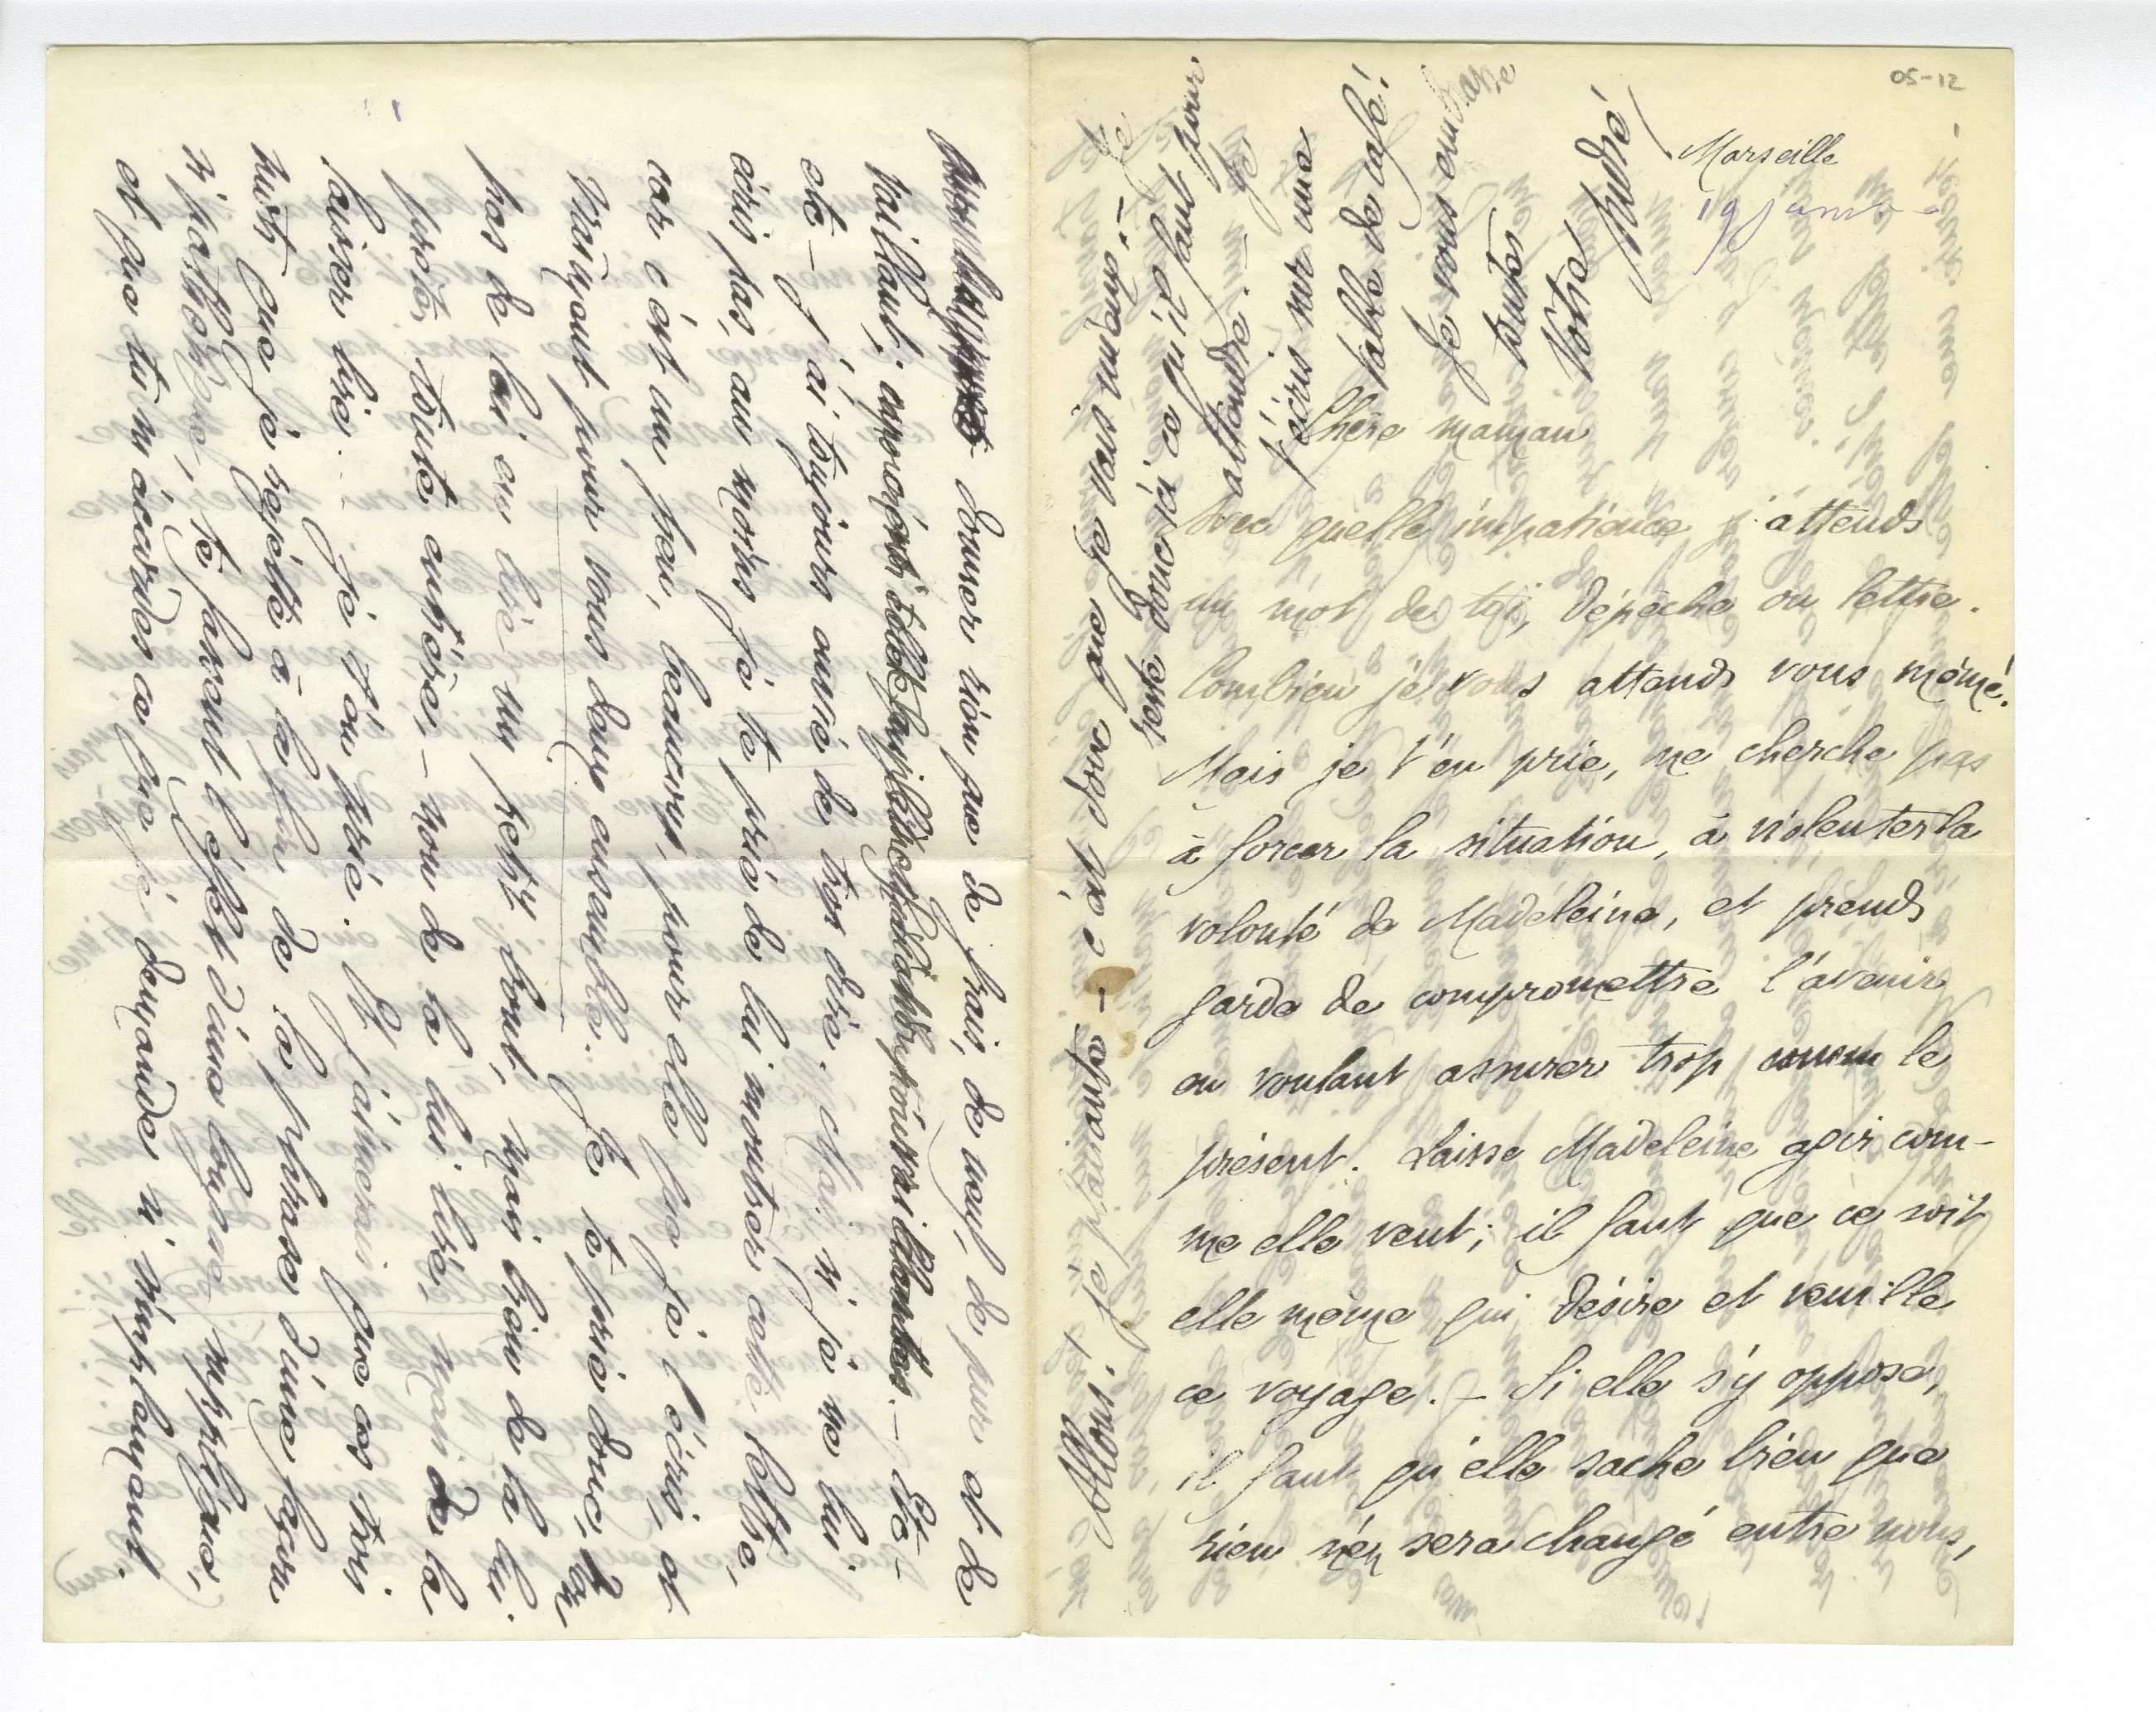 05-12
Marseille
19 janv -
Chère maman
Avec quelle impatience j'attends
un mot de toi, dépêche ou lettre.
Combien je vous attends vous même.
Mais je t'en prie, ne cherche pas
à forcer la situation, à violenter la
volonté de Madeleine, et prends
garde de compromettre l'avenir
en voulant assurer trop le
présent. Laisse Madeleine agir com-
me elle veut; il faut que ce soit
elle même qui désire et veuille
ce voyage. – Si elle s'y oppose,
il faut qu'elle sache bien que
rien n'en sera changé entre nous,
donner rien que de frais, de neuf, de pur et de
vaillant; – Etc-
etc – j'ai toujours envie de trop dire. Mais si je ne lui
écris pas, au moins je te prie de lui montrer cette lettre,
car c'est un peu, beaucoup, pour elle que je l'écris, et
vraiment pour vous deux ensemble. Je te prie donc, toi
pas de lui en lire un petit bout, mais bien de la lui
prêter toute entière, – non de la lui lire, mais de la
laisser lire. Je t'en prie. Et j'aimerais que ces trois
mots que je répète à la fin de la phrase d'une façon
si pathétique, te fassent l'effet d'une bonne supplique,
et que tu m'accordes ce que je demande si simplement.
Allons! je plaisante – c'est donc que je vais mieux. – Je
sens donc ici ce qu'il faut pour
attendre. – Je
t'écris sur une
table de café!
Je vous embrasse
toutes
Votre
André